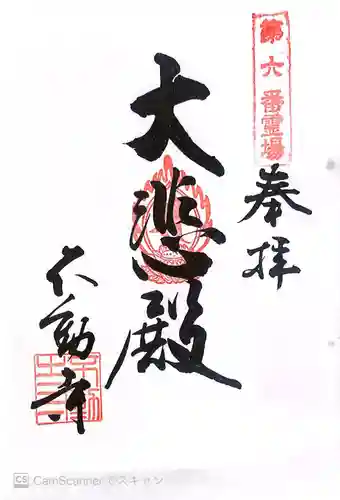 第六番霊場
奉拝
大悲殿
不動寺
CS CamScanner でスキャン